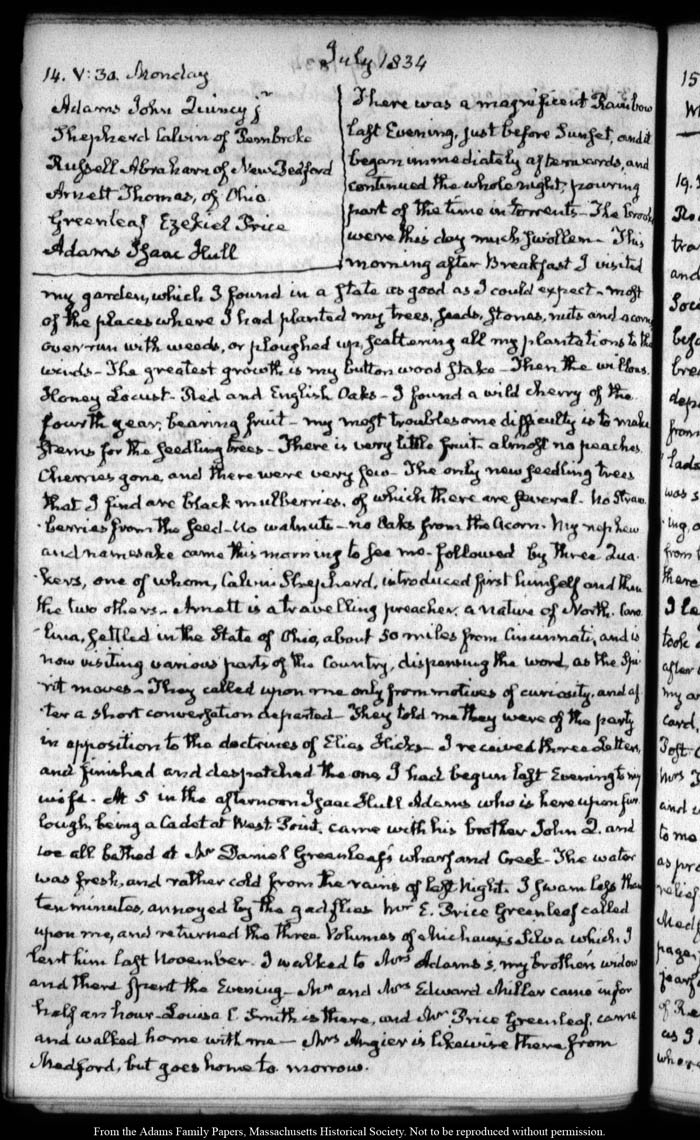 July 1834
14. V: 30. Monday
Adams John Quincy jr
Shepherd Calvin of Pembroke
Russell Abraham of New Bedford
Arnett Thomas, of Ohio
Greenleaf Ezekiel Price
Adams Isaac Hull
There was a magnificent Rainbow
last Evening, just before Sunset, and it
began immediately afterwards, and
continued the whole night, pouring
part of the time in torrents — The brooks
were this day much swollen — This
morning after Breakfast I visited
my garden, which I found in a state as good as I could expect — most
of the places where I had planted my trees, seeds, stones, nuts and acorns
over-run with weeds, or ploughed up, scattering all my plantations to the
winds — The greatest growth is my button wood stake — Then the willows.
Honey Locust — Red and English Oaks — I found a wild cherry of the
fourth year, bearing fruit — my most troublesome difficulty is to make
stems for the seedling trees — There is very little fruit. almost no peaches
Cherries gone, and there were very few — The only new seedling trees
that I find are black mulberries, of which there are several. No straw
-berries from the seed — no walnuts — no Oaks from the Acorn. My nephew
and namesake came this morning to see me — followed by three Qua-
-kers, one of whom, Calvin Shepherd, introduced first himself and then
the two others — Arnett is a travelling preacher, a native of North Caro-
-lina, settled in the State of Ohio, about 50 miles from Cincinnati, and is
now visiting various parts of the Country, dispensing the word, as the Spi-
-rit moves — They called upon me only from motives of curiosity, and af
-ter a short conversation departed — They told me they were of the party
in opposition to the doctrines of Elias Hicks — I received three Letters,
and finished and despatched the one I had begun last Evening to my
wife. At 5 in the afternoon Isaac Hull Adams who is here upon fur-
lough, being a Cadet at West Point, came with his brother John Q. and
we all bathed at Mr Daniel Greenleaf's wharf and Creek — The water
was fresh, and rather cold from the rains of last Night. I swam less than
ten minutes, annoyed by the gadflies Mr E. Price Greenleaf called
upon me, and returned the three Volumes of Michaux's Silva which I
lent him last November. I walked to Mrs Adams's, my brother's widow
and there spent the Evening — Mr and Mrs Edward Miller came in for
half an hour — Louisa C. Smith is there, and Mr Price Greenleaf, came
and walked home with me — Mrs Angier is likewise there from
Medford, but goes home to morrow.
15
19.
Ro
tra
and
Soci
befo
brea
depa
from
lads
was s
ing, o
from
there
I le
took
after
my
card,
Post
Mrs
and
to me
as pro
relief
Medf
page,
years
of Re
as I
where
From the Adams Family Papers, Massachusetts Historical Society. Not to be reproduced without permission.